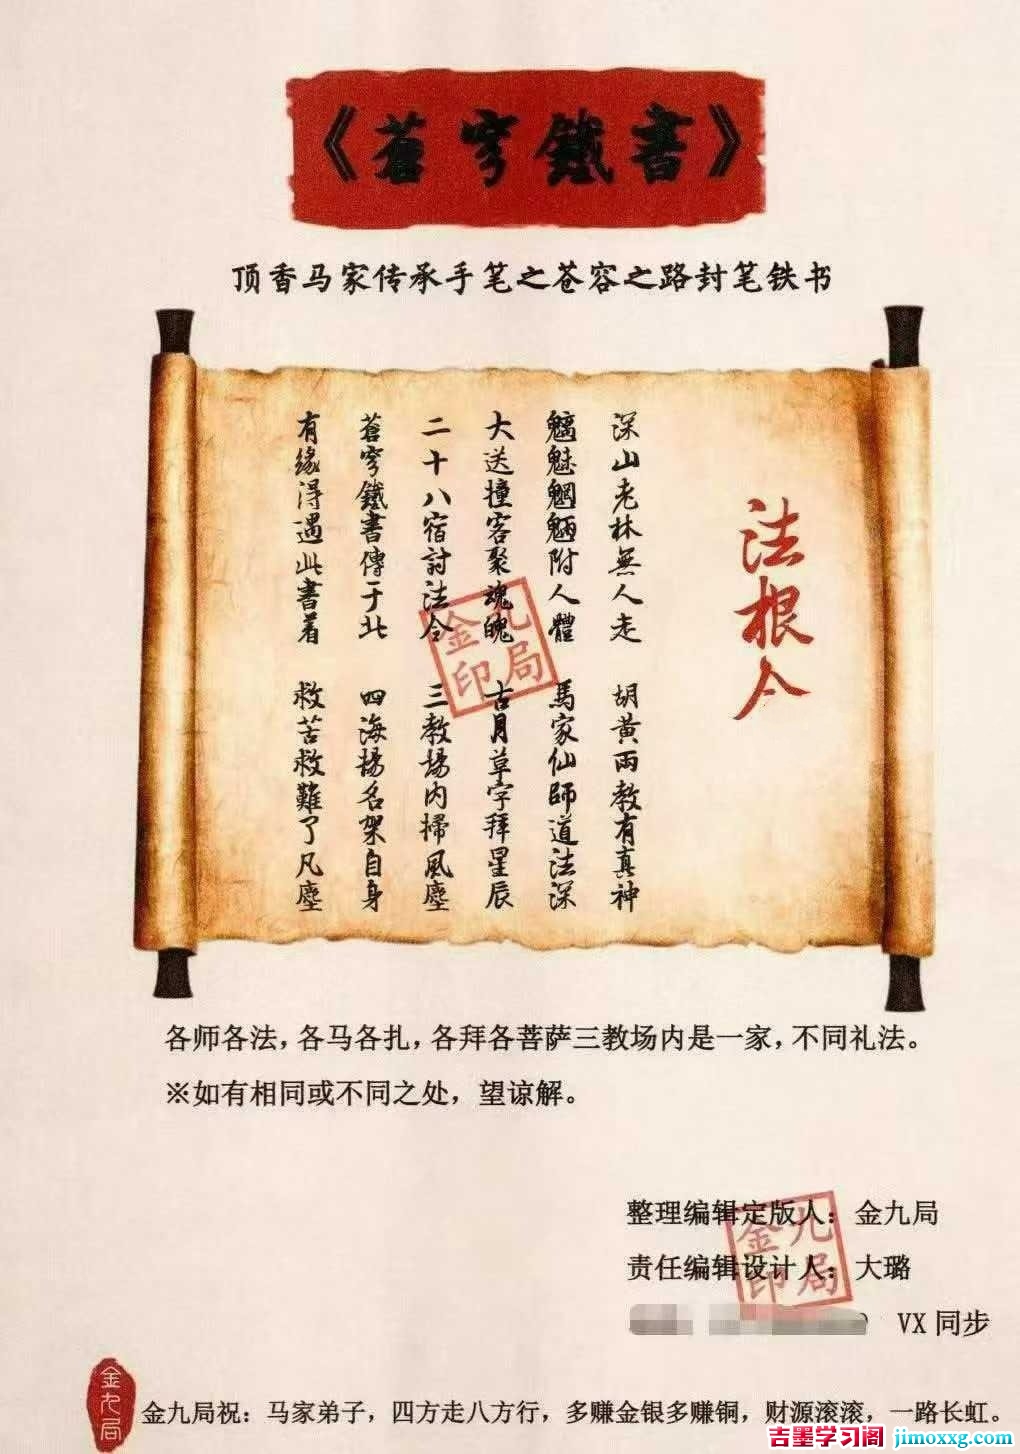 《蒼穹鐵書》
顶香马家传承手笔之苍容之路封笔铁书
法根令
深山老林無人走 胡黄兩教有真神
魑魅魍魎附人體 馬家仙師道法深
大送撞客聚魂魄 古月草字拜星辰
二十八宿討法令 三教場内掃風塵
蒼穹鐵書傳于北 四海揚名架自身
有緣得遇此書着 救苦救難了凡塵
金九局印
各师各法，各马各扎，各拜各菩萨三教场内是一家，不同礼法。
※如有相同或不同之处，望谅解。
整理编辑定版人：金九局
责任编辑设计人：大璐
金九局印
VX 同步
金九局
金九局祝：马家弟子，四方走八方行，多赚金银多赚铜，财源滚滚，一路长虹。
吉墨学习阁 jimoxxg.com